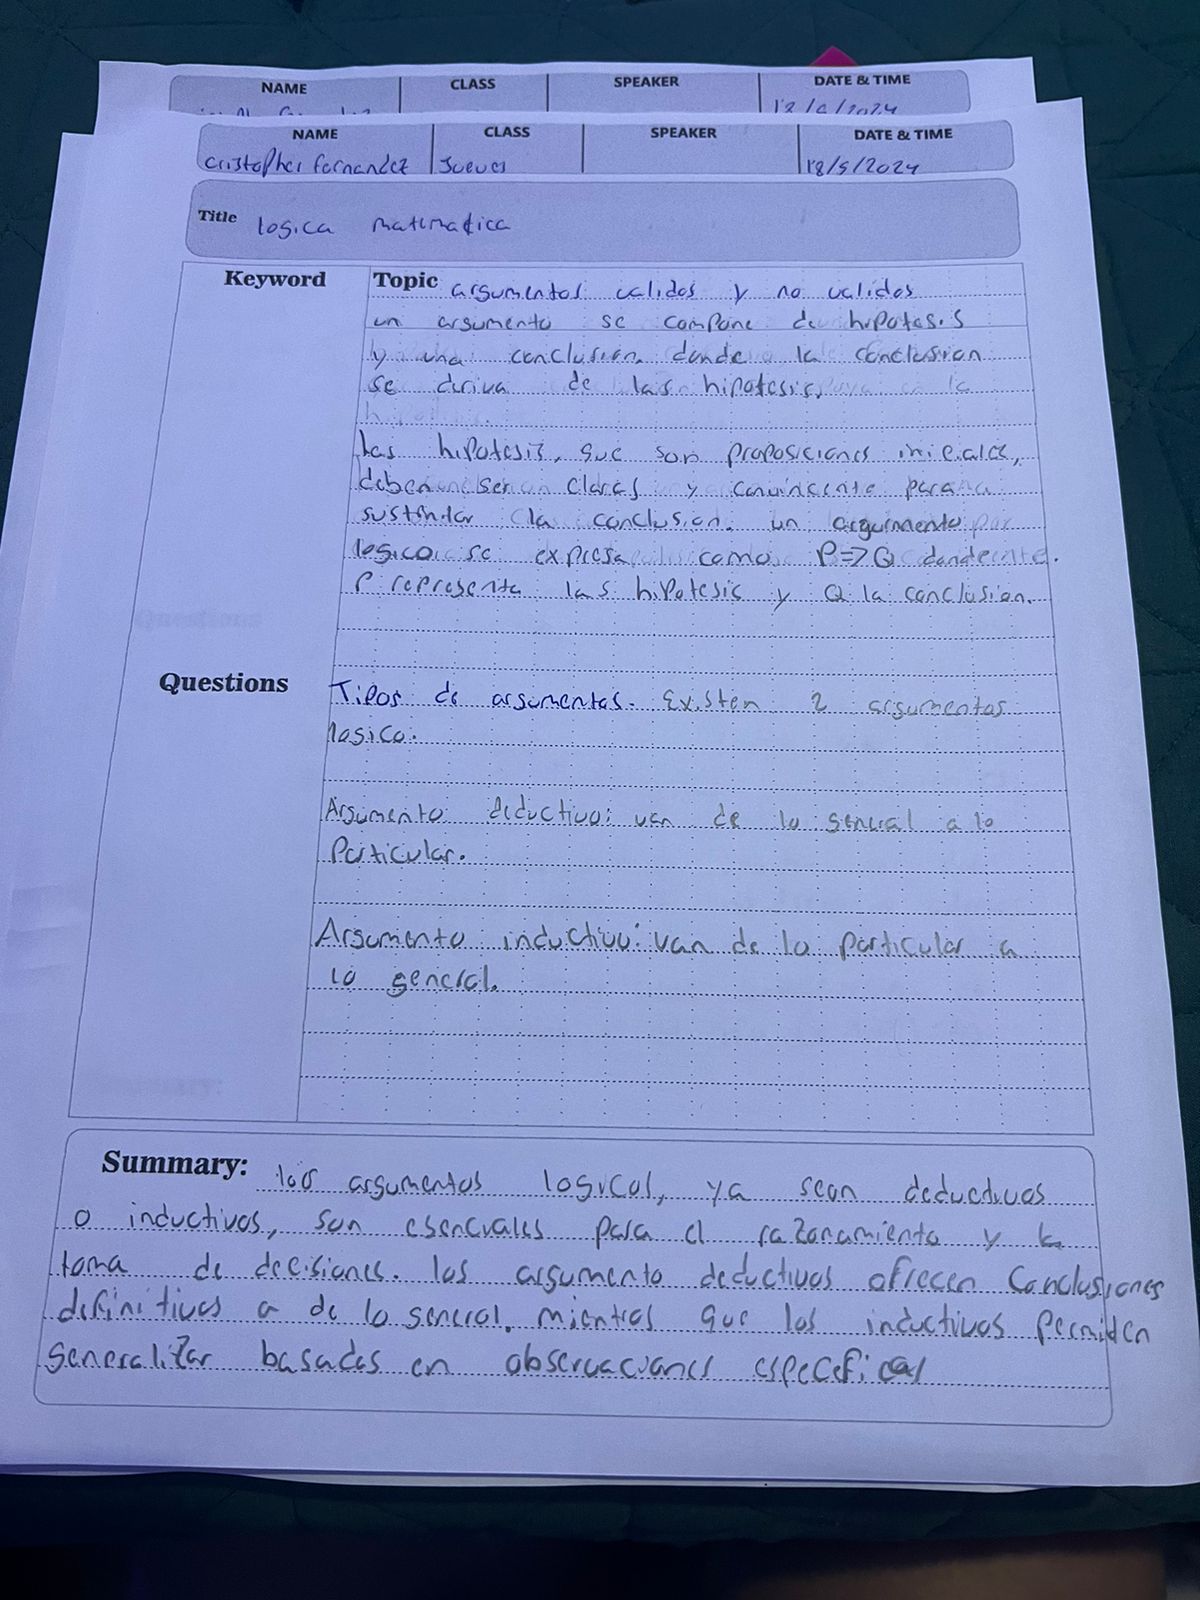 NAME CLASS SPEAKER DATE & TIME
NAME CLASS SPEAKER DATE & TIME
Cristopher fernandez Jueves 18/5/2024
Title logica matematica
Keyword Topic argumentos validos y no validos
un argumento se compone de hipotesis
y una conclusion donde la conclusion
se deriva de las hipotesis,
Las hipotesis, que son proposiciones iniciales,
deben ser claras y convincente para
sustentar la conclusion. un argumento
logico se expresa como P=>Q donde
P representa las hipotesis y Q la conclusion.
Questions Tipos de argumentos. Existen 2 argumentos
logico.
Argumento deductivo: van de lo general a lo
Particular.
Argumento inductivo: van de lo particular a
lo general.
Summary: los argumentos logicos, ya sean deductivos
o inductivos, son esenciales para el razonamiento y la
toma de decisiones. los argumento deductivos ofrecen Conclusiones
definitivas a de lo general, mientras que los inductivos Permiten
Generalizar basadas en observaciones especificas